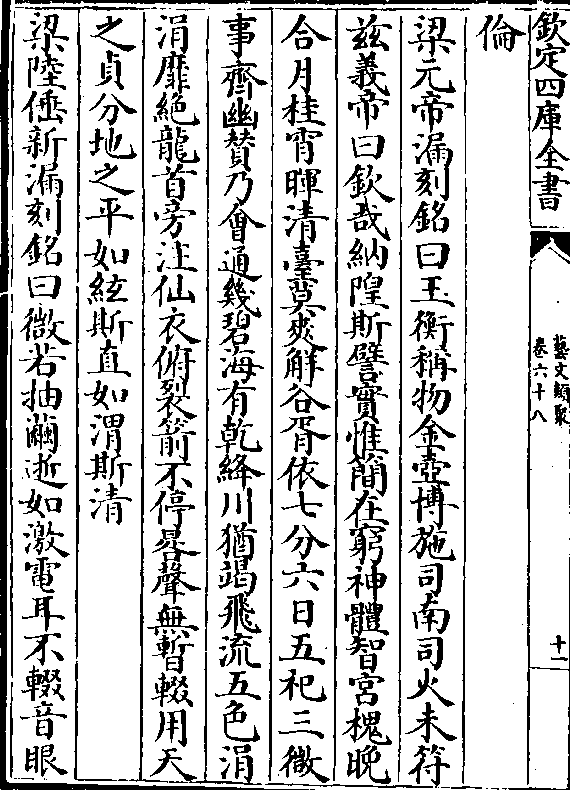 欽定四庫全書
藝文類聚
卷六十八
十一
倫
梁元帝漏刻銘曰玉衡稱物金壺博施司南司火未符
兹義帝曰欽哉納隍斯譬實惟簡在窮神體智宮槐晚
合月桂宵暉清臺莫爽解谷胥依七分六日五祀三微
事齊幽贊乃會通幾碧海有乾絳川猶竭飛流五色涓
涓靡絕龍首旁注仙衣俯裂箭不停晷聲無暫輟用天
之貞分地之平如絃斯直如渭斯清
梁陸倕新漏刻銘曰微若抽繭逝如激電耳不輟音眼